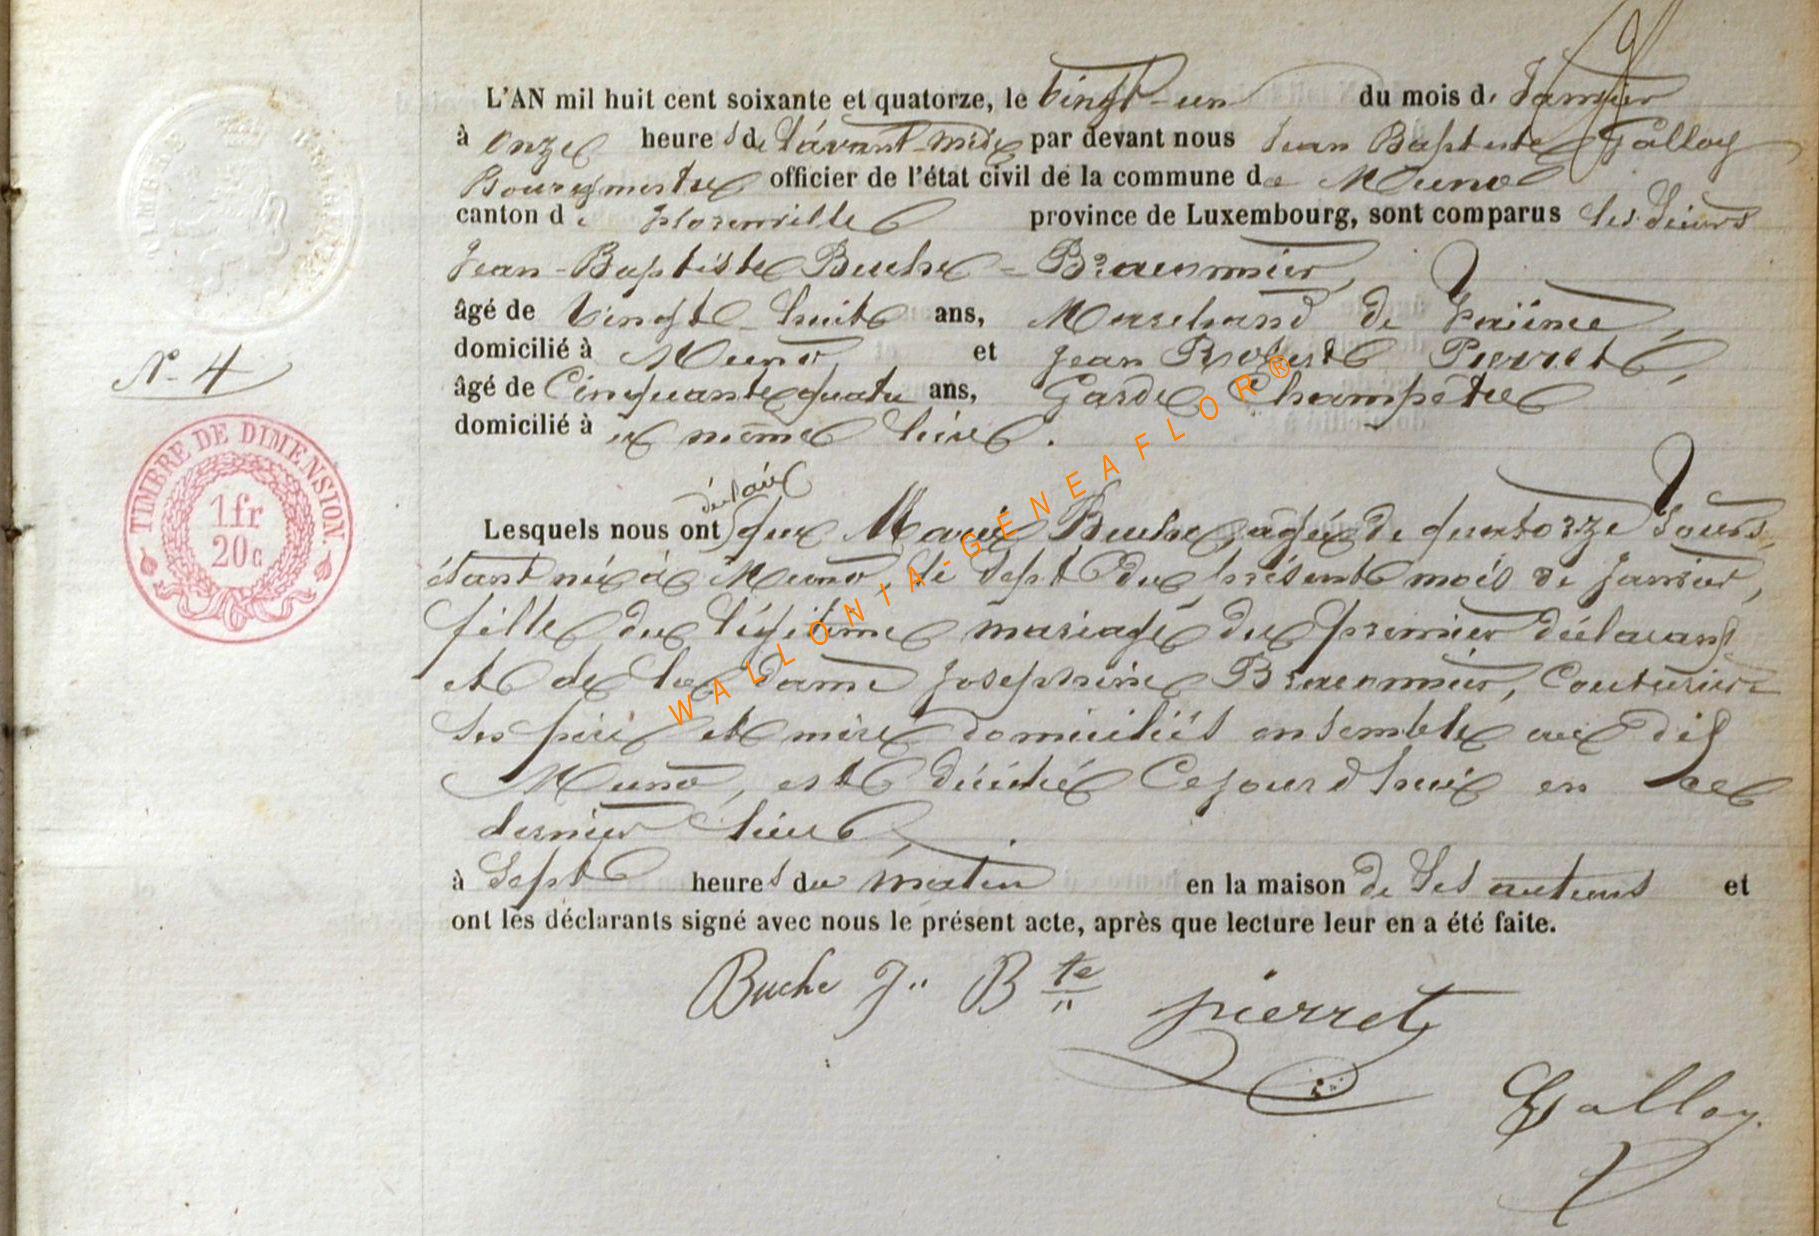 L'AN mil huit cent soixante et quatorze, le vingt-un du mois de Janvier
à onze heures de l'avant-midi par devant nous Jean Baptiste Galloy
Bourgmestre officier de l'état civil de la commune de Muno
canton de Florenville province de Luxembourg, sont comparus les Sieurs
Jean-Baptiste Buche - Braconnier,
âgé de vingt-huit ans, Marchand de
domicilié à Muno et Jean Robert Pierret,
âgé de Cinquante quatre ans, Garde Champêtre
domicilié à au même lieu.
déclaré
Lesquels nous ont que Marie Buche, agée de quatorze Jours,
étant née à Muno, le Sept du présent mois de Janvier,
fille du légitime mariage du premier déclarant
et de la dame Josephine Braconnier, Couturière
Ses père et mère domiciliés ensemble au dit
Muno, est décédée Cejourd'hui en ce
dernier lieu.
à Sept heures du matin en la maison de Ses auteurs et
ont les déclarants signé avec nous le présent acte, après que lecture leur en a été faite.
Buche J" Bte
pierret
Galloy
N° 4
TIMBRE DE DIMENSION
1fr
20c
WALLONIA-GÉNÉAFLOR®